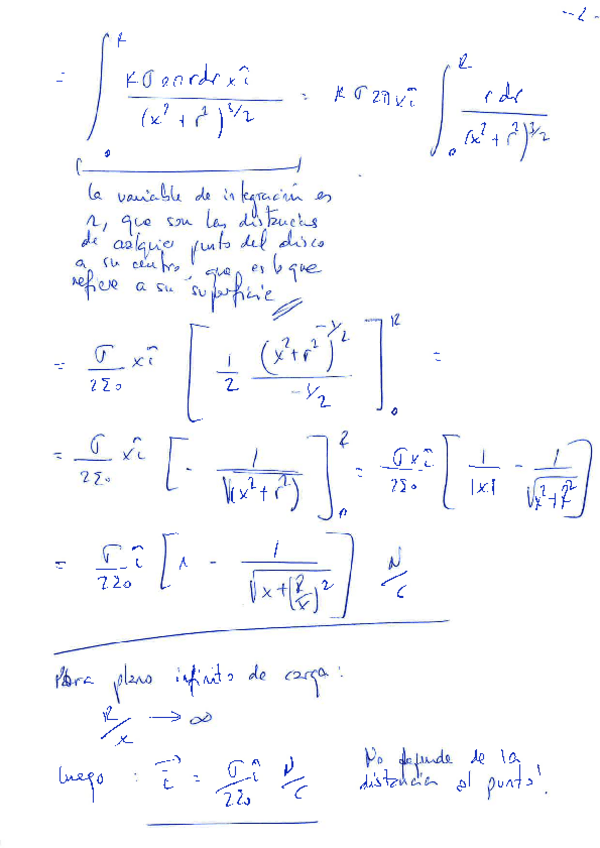 -2-
= ∫₀ᴿ Kσ2πrdr x î / (x² + r²)^3/2 = Kσ2πx î ∫₀ᴿ rdr / (x² + r²)^3/2
la variable de integración es
r, que son las distancias
de cualquier punto del disco
a su centro, que es lo que
refiere a su superficie
= σ/2ε₀ x î [ 1/2 (x²+r²)^-1/2 / -1/2 ]₀ᴿ =
= σ/2ε₀ x î [ - 1/√(x²+r²) ]₀ᴿ = σx î/2ε₀ [ 1/|x| - 1/√x²+R² ]
= σ/2ε₀ î [ 1 - 1/√x+(R/x)² ] N/C
Para plano infinito de carga:
R/x → ∞
luego : = σ/2ε₀ î N/C No depende de la
distancia al punto!